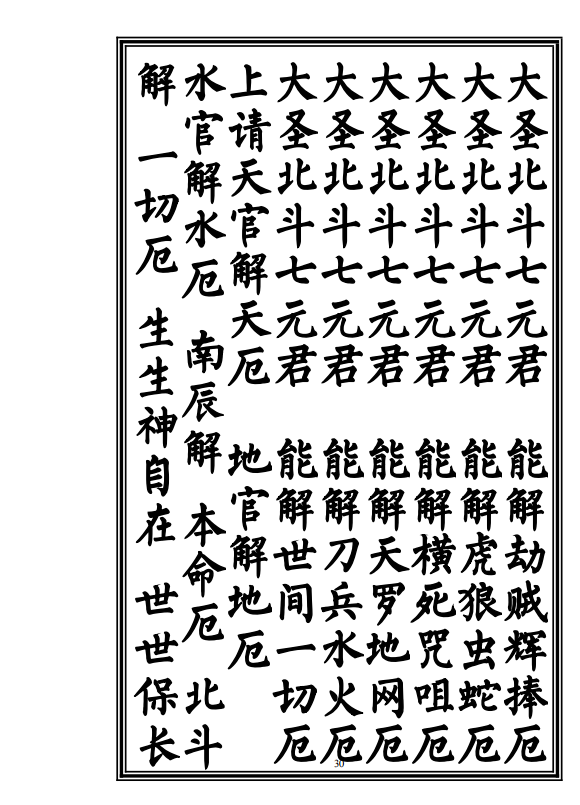 大圣北斗七元君 能解劫贼辉捧厄
大圣北斗七元君 能解虎狼虫蛇厄
大圣北斗七元君 能解横死咒咀厄
大圣北斗七元君 能解天罗地网厄
大圣北斗七元君 能解刀兵水火厄
大圣北斗七元君 能解世间一切厄
上请天官解天厄 地官解地厄
水官解水厄 南辰解 本命厄 北斗
解 一切厄 生生神自在 世世保长
30